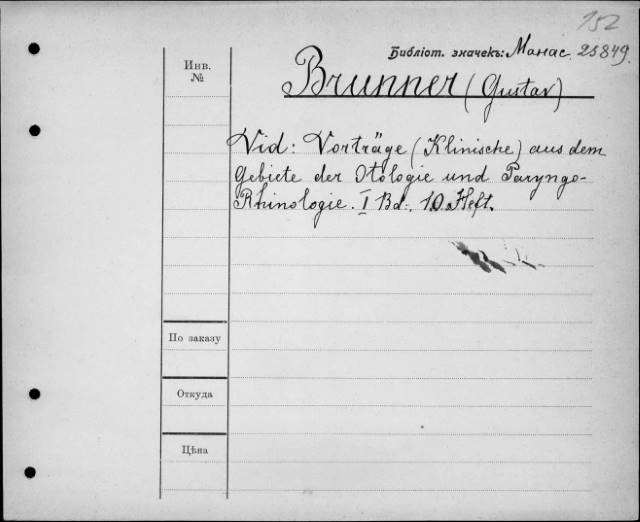 152
Библіот. значекъ: Манас. 25849.
Инв.
№
Brunner (Gustav)
Vid: Vorträge (Klinische) aus dem
Gebiete der Otologie und Paryngo-
Rhinologie. I Bd. 10 Heft.
По заказу
Откуда
Цѣна